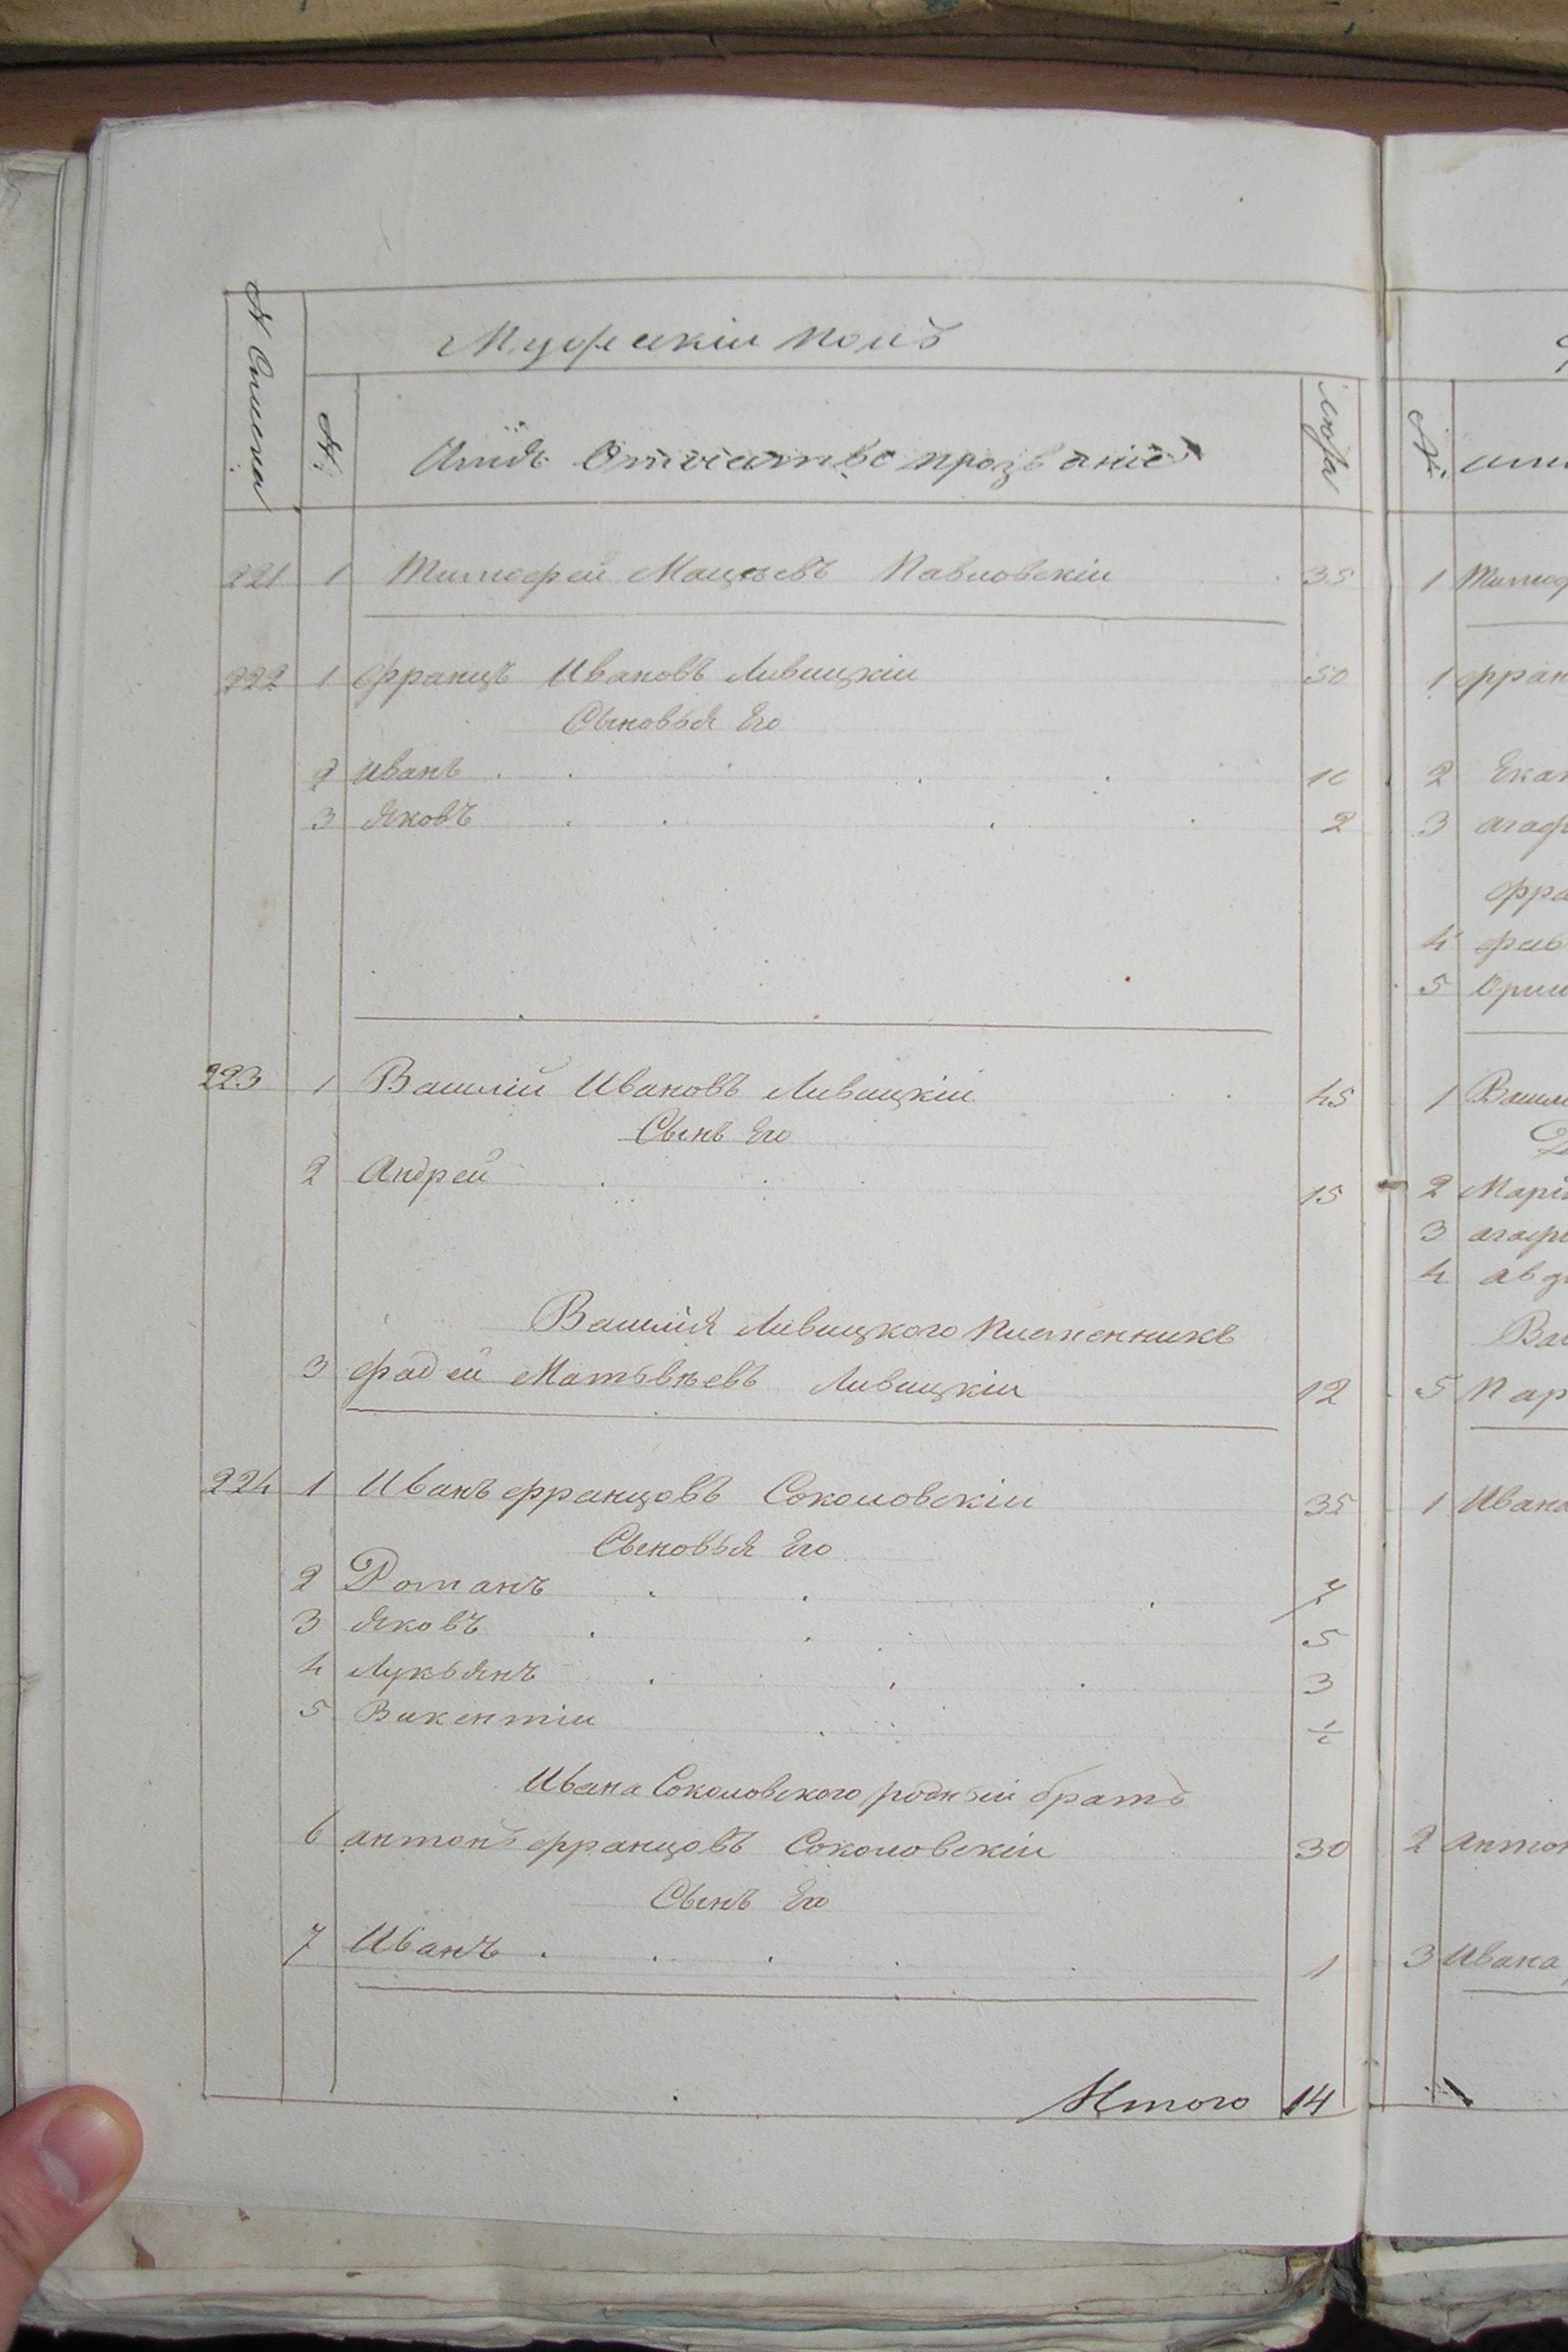 Мужескій полъ
№ Списка
№
Имя Отчество прозваніе
Люта
221 1 Тимофей Мацѣевъ Павловскіи 35
222 1 Францъ Ивановъ Ливицкіи 50
Сыновья Его
2 Иванъ 10
3 Яковъ 2
223 1 Василій Ивановъ Ливицкіи 45
Сынъ Его
2 Андрей 15
Василія Ливицкого племенникъ
3 Фадей Матьвѣевъ Ливицкіи 12
224 1 Иванъ Францовъ Соколовскіи 35
Сыновья Его
2 Романъ 7
3 Яковъ 5
4 Лукьянъ 3
5 Викентіи ½
Ивана Соколовского родный братъ
6 Антонъ Францовъ Соколовскіи 30
Сынъ Его
7 Иванъ 1
Итого 14
№
1
1
2
3
4
5
1
2
3
4
5
1 Ивана
2
3 Ивана